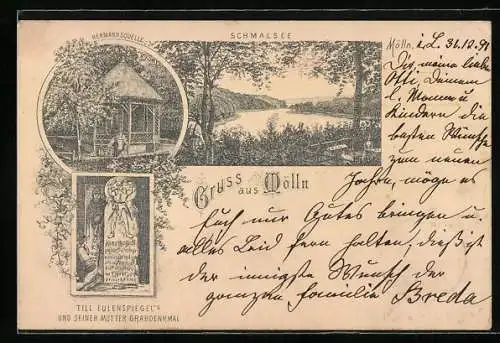 HERMANNSQUELLE
SCHMALSEE
Mölln i. L. 31.12.9
Dir, meine liebe
Otti, Deinem
l. Manne u
Kindern die
besten Wünsche
zum neuen
Jahre, möge es
Euch nur Gutes bringen u.
alles Leid fern halten, dieß ist
der innigste Wunsch der
ganzen Familie Breda
Gruss aus Mölln
TILL EULENSPIEGEL'S
UND SEINER MUTTER GRABDENKMAL